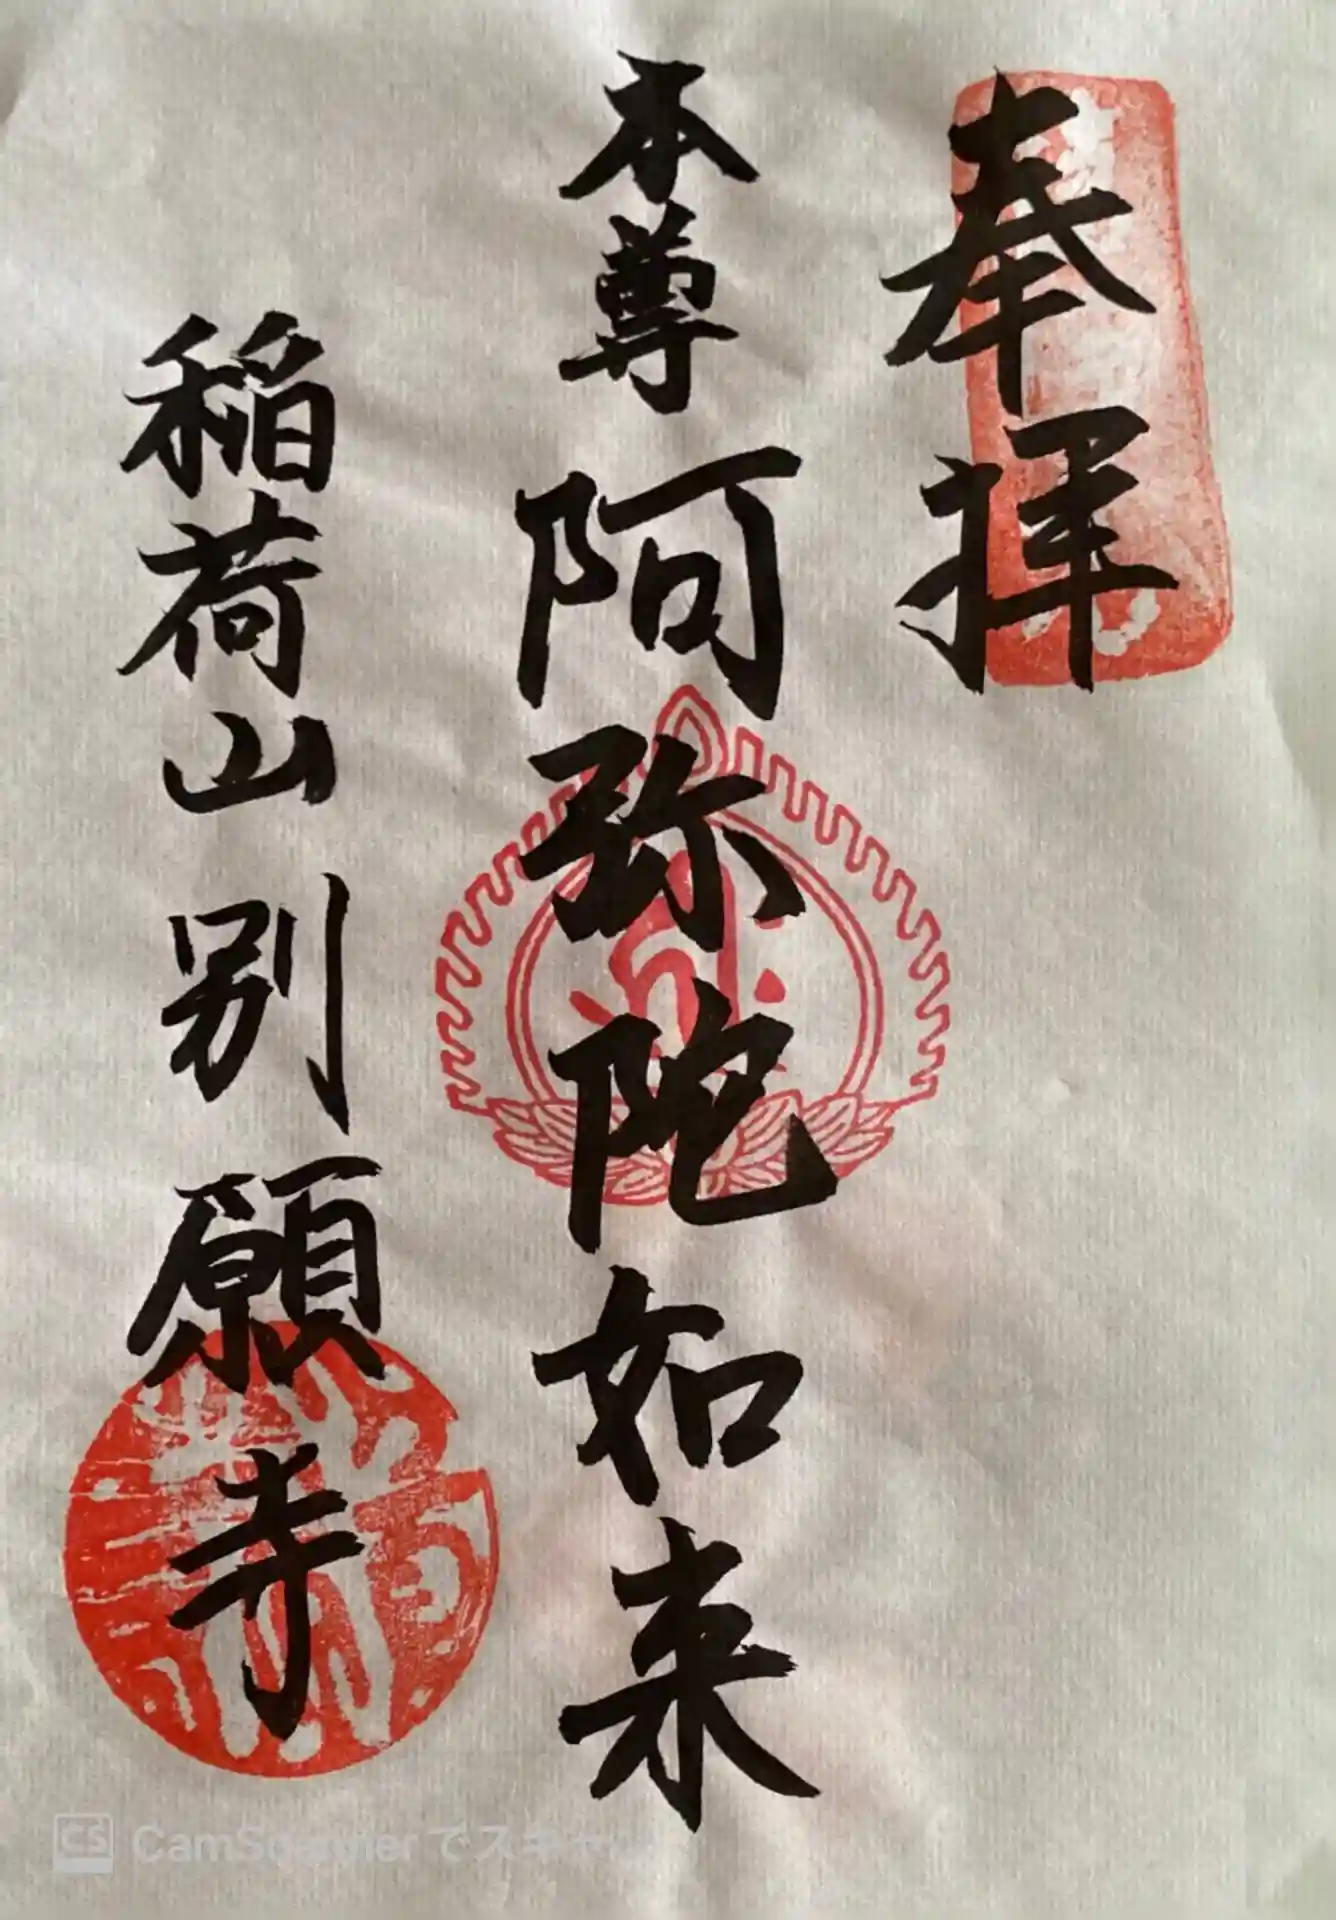 奉拝
本尊 阿弥陀如来
稲荷山 別願寺
CS CamScannerでスキャン